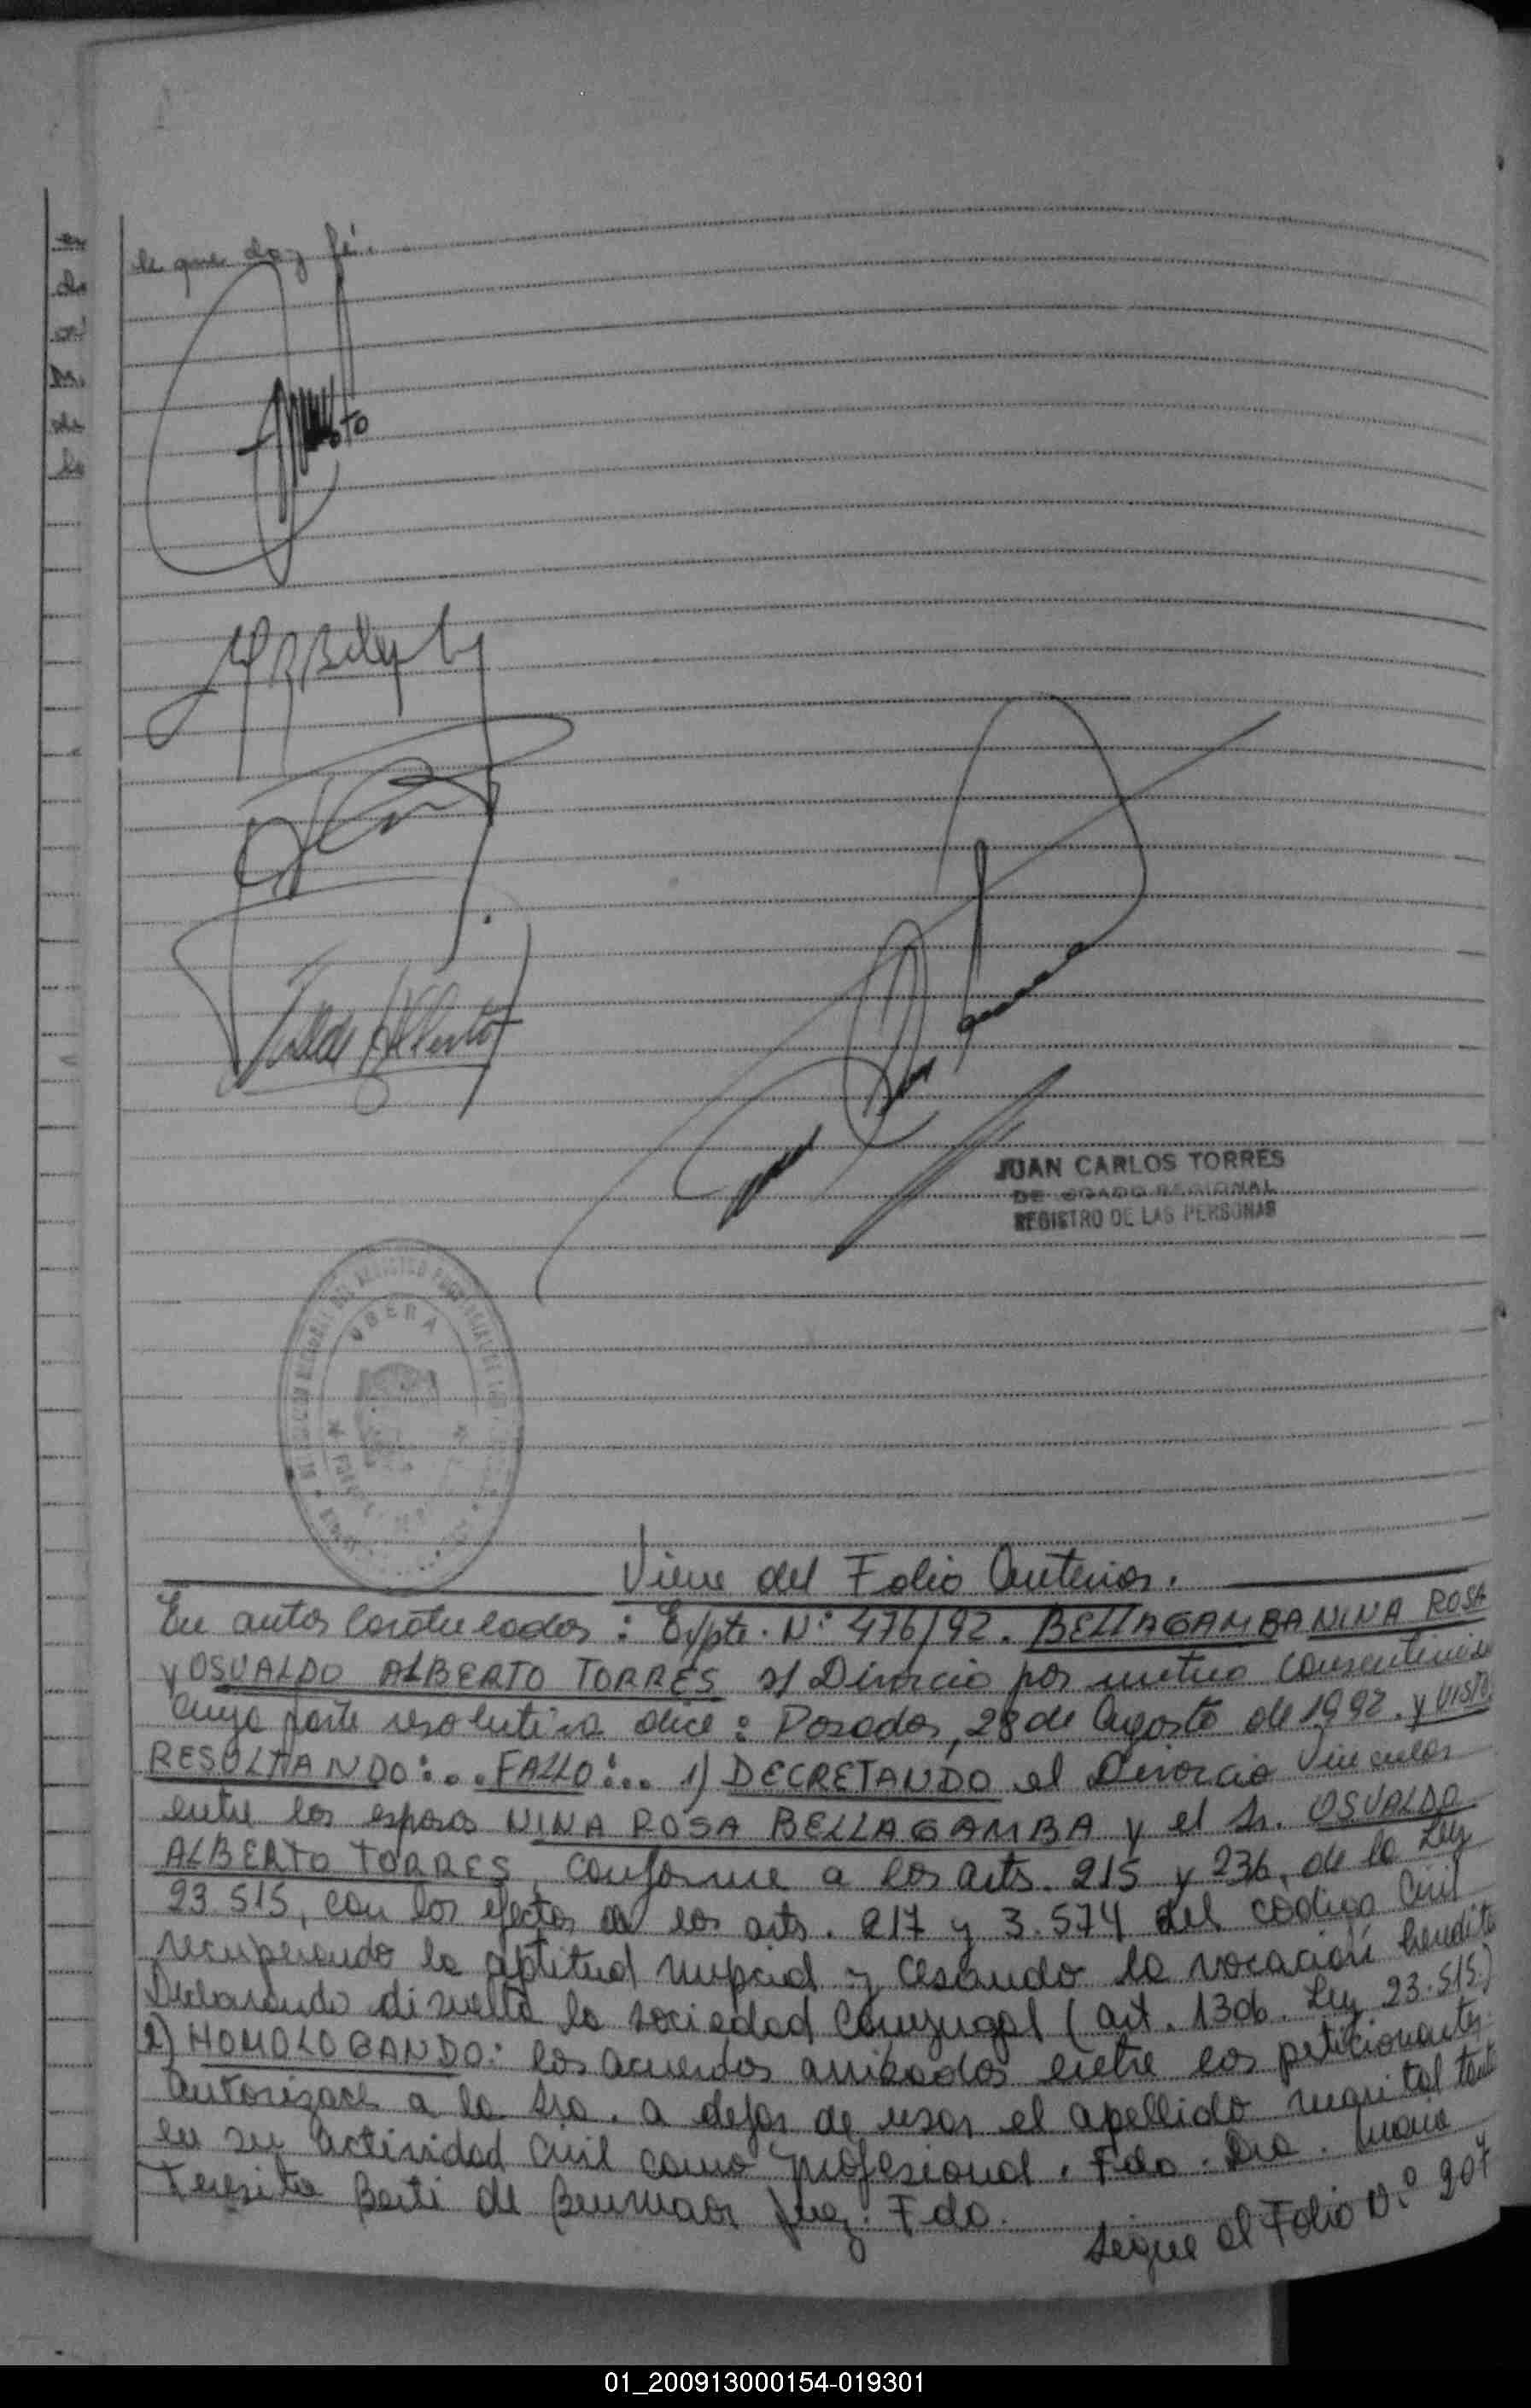 de que doy fé.
JUAN CARLOS TORRES
REGIONAL
REGISTRO DE LAS PERSONAS
OBERA
Viene del Folio Anterior.
En autos Caratulados : Expte. Nº 476/92. BELLAGAMBA NINA ROSA
y OSVALDO ALBERTO TORRES s/ Divorcio por mutuo
cuya parte resolutiva dice : Posadas, 28 de Agosto de 1992. y VISTO
RESULTANDO:... FALLO:... 1) DECRETANDO el Divorcio Vincular
entre los esposos NINA ROSA BELLAGAMBA y el Sr. OSVALDO
ALBERTO TORRES, conforme a los arts. 215 y 236, de la Ley
23.515, con los efectos de los arts. 217 y 3.574 del codigo Civil
recuperando la aptitud nupcial y cesando la vocación
Declarando disuelta la sociedad Conyugal (art. 1306. Ley 23.515)
2) HOMOLOGANDO: los acuerdos arribados entre los peticionantes
autorizace a la Sra. a dejar de usar el apellido marital tanto
en su actividad Civil como profesional. Fdo. Dra. Maria
Teresita Berti de Juez. Fdo.
Sigue al Folio Nº 207
01_200913000154-019301